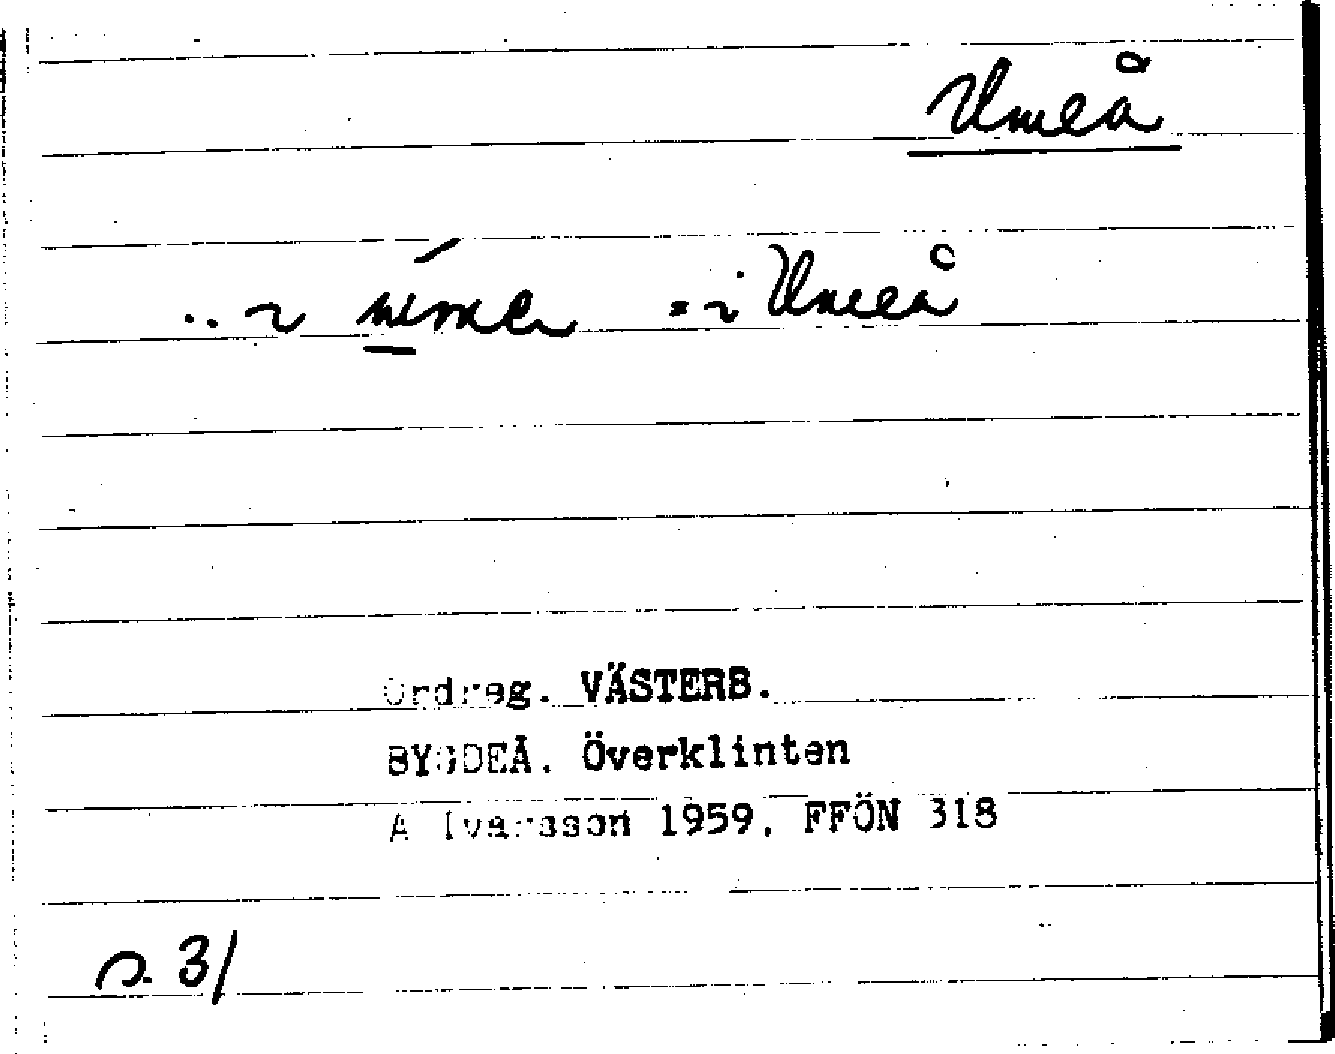 Umeå
= i Umeå
Ordreg. VÄSTERB.
BYGDEÅ. Överklinten
A Ivarsson 1959. FFÖN 318
s. 31